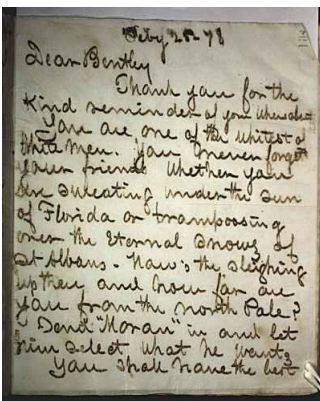 Feby 25-78
Dear Bentley
Thank you for the
Kind reminder of your
You are one of the whitest of
White men. You never forget
your friends whether you
are sweating under the sun
of Florida or tramposing
over the Eternal snows of
St Albans. How's the sleighing
up there and how far are
you from the north Pole?
Send "Moran" in and let
him select what he wants
You shall have the best